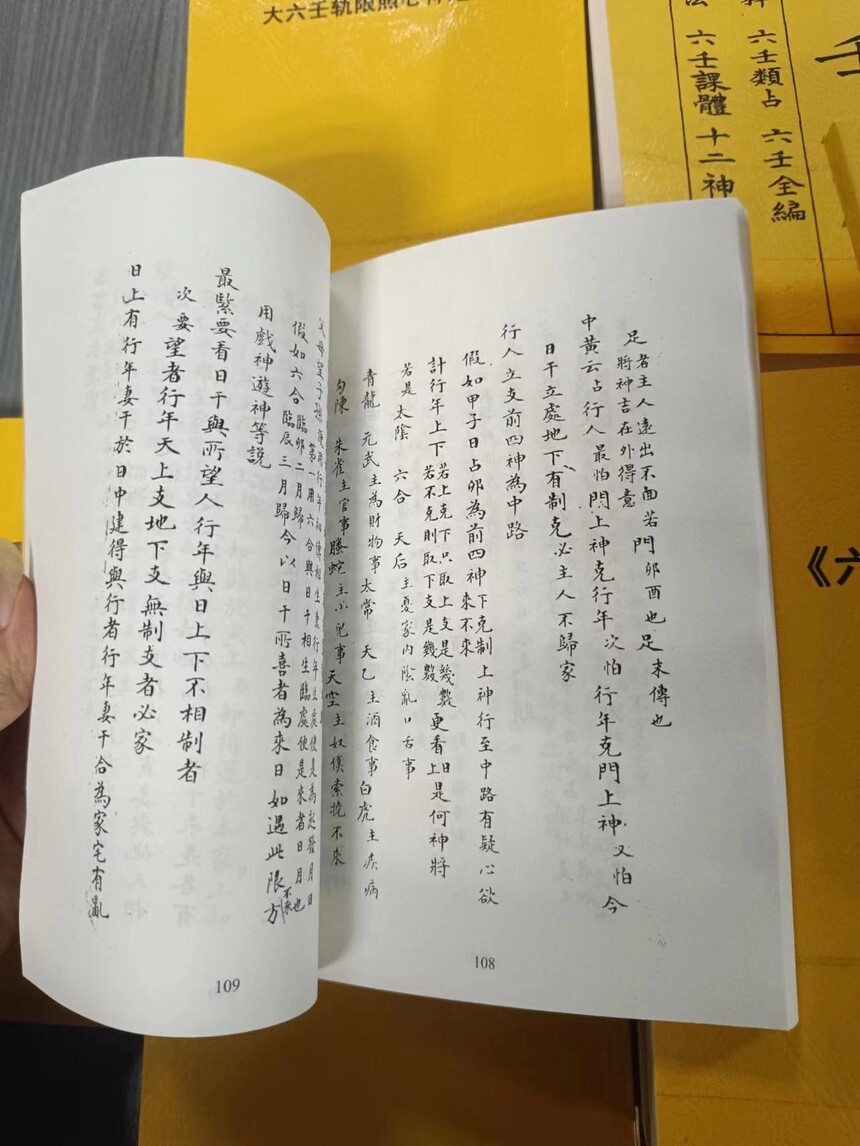 大六壬軌限照心
六壬類占 六壬全編
六壬課體 十二神
壬
《六
足者主人遠出不面若門卯酉也足末傳也
將神吉在外得意
中黃云占行人最怕門上神克行年次怕行年克門上神又怕今
日干立處地下有制克必主人不歸家
行人立支前四神為中路
假如甲子日占卯為前四神下克制上神行至中路有疑心欲
來不來
計行年上下若上克下只取上支是幾數更看日上是何神將
若不克則取下支是幾數
若是太陰 六合 天后主憂家內陰亂口舌事
青龍 元武主為財物事太常 天乙主酒食事白虎主疾病
勾陳 朱雀主官事螣蛇主小兒事天空主奴僕索挽不來
108
父母望子孫使用行年初傳相生兼行年立處使是高起發月日
假如六合臨卯二月歸第一用六合與日干相生臨處使是來者日月也
臨辰三月歸今以日干所喜者為來日如過此限方不來
用戲神遊神等說
最緊要看日干與所望人行年與日上下不相制者
次要望者行年天上支地下支無制支者必家
日上有行年妻干於日中建得與行者行年妻干合為家宅有亂
109